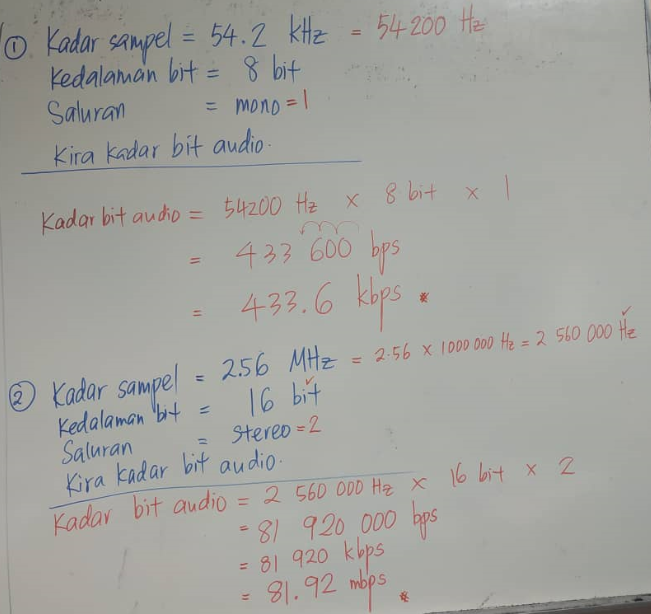 ① Kadar sampel = 54.2 kHz = 54200 Hz
Kedalaman bit = 8 bit
Saluran = mono = 1
Kira kadar bit audio.
Kadar bit audio = 54200 Hz × 8 bit × 1
= 433 600 bps
= 433.6 kbps *
② Kadar sampel = 2.56 MHz = 2.56 × 1000 000 Hz = 2 560 000 Hz
Kedalaman bit = 16 bit
Saluran = stereo = 2
Kira kadar bit audio.
Kadar bit audio = 2 560 000 Hz × 16 bit × 2
= 81 920 000 bps
= 81 920 kbps
= 81.92 mbps *